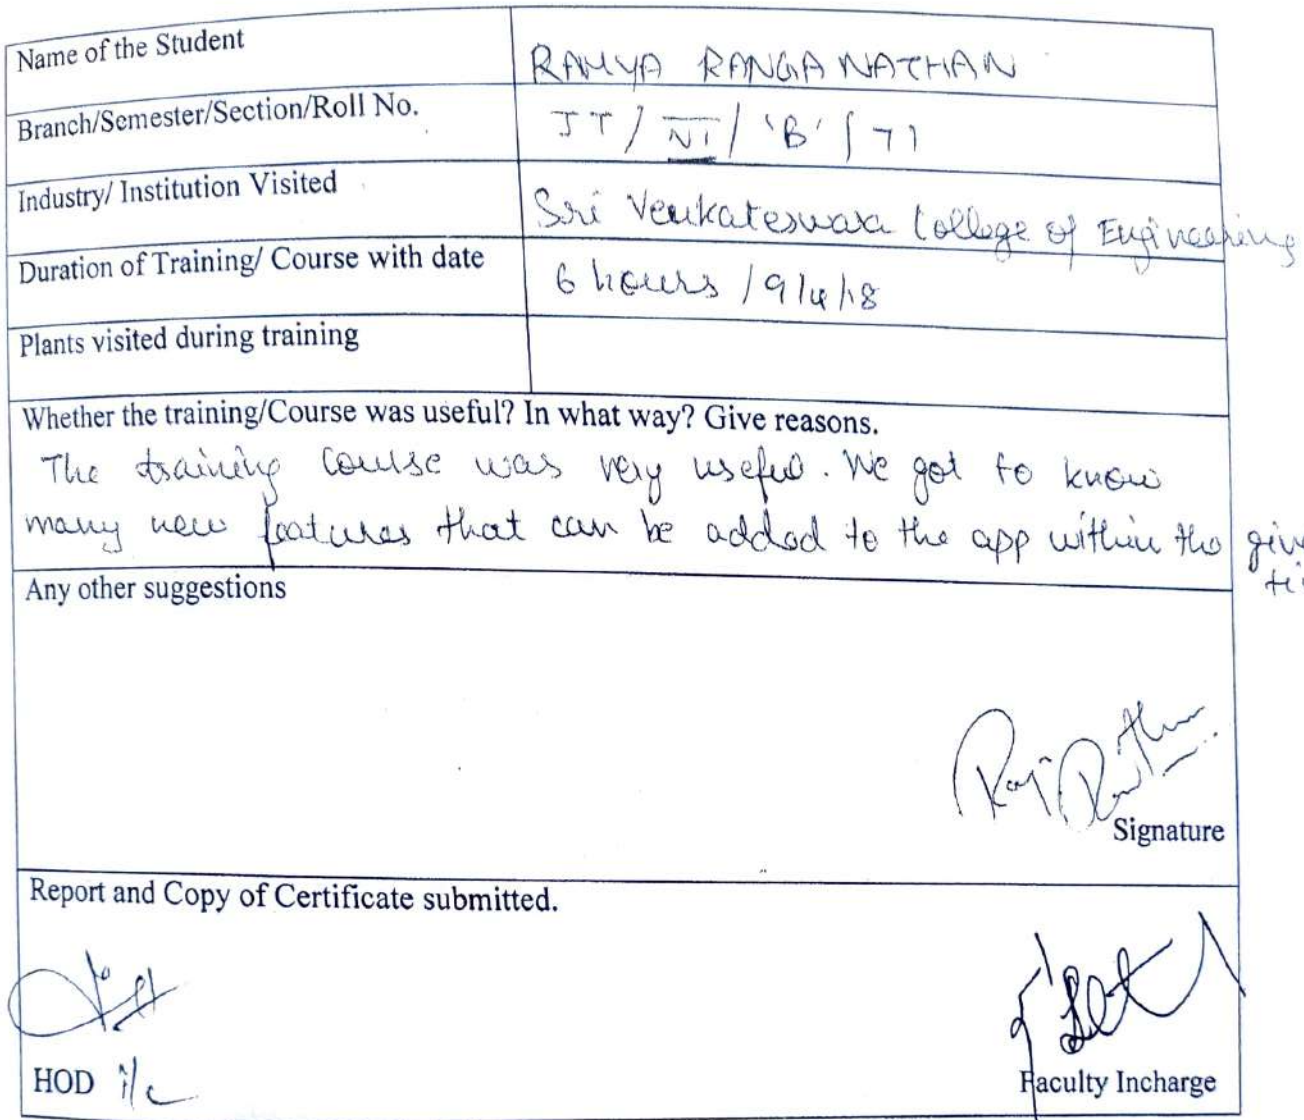 Name of the Student RAMYA RANGANATHAN
Branch/Semester/Section/Roll No. IT / VI / 'B' / 71
Industry/ Institution Visited Sri Venkateswara College of Engineering
Duration of Training/ Course with date 6 hours / 9/4/18
Plants visited during training
Whether the training/Course was useful? In what way? Give reasons.
The training course was very useful. We got to know
many new features that can be added to the app within the
Any other suggestions
Signature
Report and Copy of Certificate submitted.
HOD i/c
Faculty Incharge